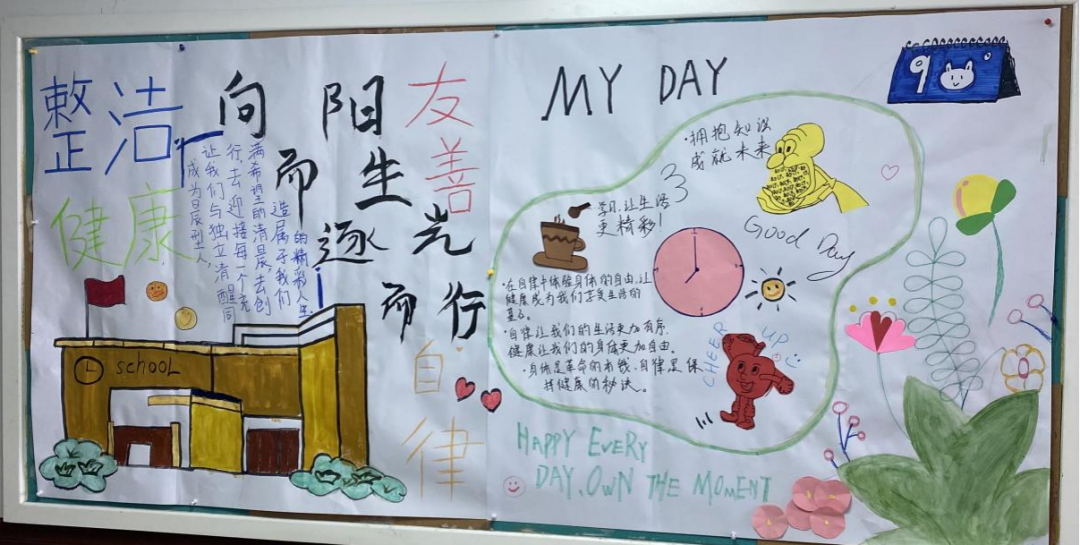 整洁
向阳
而生
逐光
而行
友善
健康
自律
成为晨型人,
让我们与独立清醒同
行,去迎接每一个充
满希望的清晨,去创
造属于我们
的精彩人生!
SCHOOL
MY DAY
9
·拥抱知识
成就未来
学习,让生活
更精彩!
GOOD Day
·在自律中体验身体的自由,让
健康成为我们享受生活的
基石。
·自律让我们的生活更加有序,
健康让我们的身体更加自由。
·身体是革命的本钱,自律是保
持健康的秘诀。
CHEER UP
HAPPY EVERY
DAY, OWN THE MOMENT